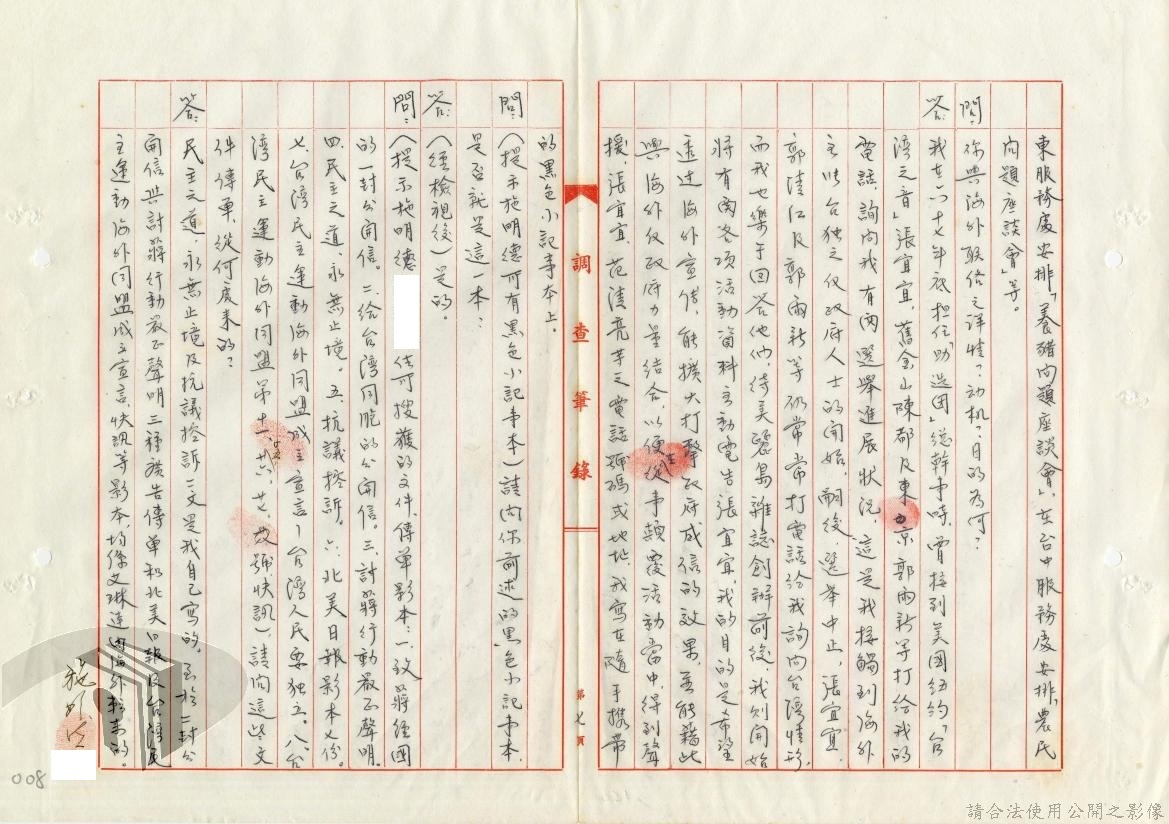 東服務處安排「養豬問題座談會」、在台中服務處安排「農民
問題座談會」等。
問:你與海外聯絡之詳情?动机?目的為何?
答:我在六十七年底担任「助選团」總幹事時,曾接到美国紐約「台
湾之音」張宜宜,舊金山陳都及東京郭雨新等打給我的
電話,詢问我有関選舉進展狀況,這是我接觸到海外
主张台独之仅政府人士的開始。嗣後,選举中止,張宜宜、
郭清江及郭雨新等仍常常打電話給我詢问台湾情形,
而我也樂于回答他们,待美麗島雜誌創辦前後,我則開始
將有関各項活動資料主動電告張宜宜,我的目的是希望
透过海外宣传,能擴大打擊政府威信的效果,並能藉此
與海外仅政府力量結合,以便從事顛覆活动當中,得到聲
援,張宜宜、范清亮等之電話號碼或地址,我寫在隨手攜帶
調查筆錄
第七頁
的黑色小記事本上。
問:(提示施明德所有黑色小記事本)請问你前述的黑色小記事本,
是否就是這一本?
答:(經檢視後)是的。
問:(提示施明德 住所搜獲的文件、傳單影本:一、致蔣經國
的一封公開信。二、給台湾同胞的公開信。三、討蔣行動嚴正聲明。
四、民主之道、永無止境。五、抗議控訴。六、北美日報影本乂份。
七、台湾民主運動海外同盟成立宣言—台湾人民要独立。八、台
湾民主運動海外同盟第十一、廿六、廿七、 號快訊),請问這些文
件傳單,從何處來的?
答:民主之道,永無止境及抗議控訴二文是我自己寫的,至於一封公
開信與討蔣行動嚴正聲明三種獷告傳单和北美日報及台湾民
主運動海外同盟成立宣言、快訊等影本,均係艾琳達 海外 的。
施明德
008
請合法使用公開之影像